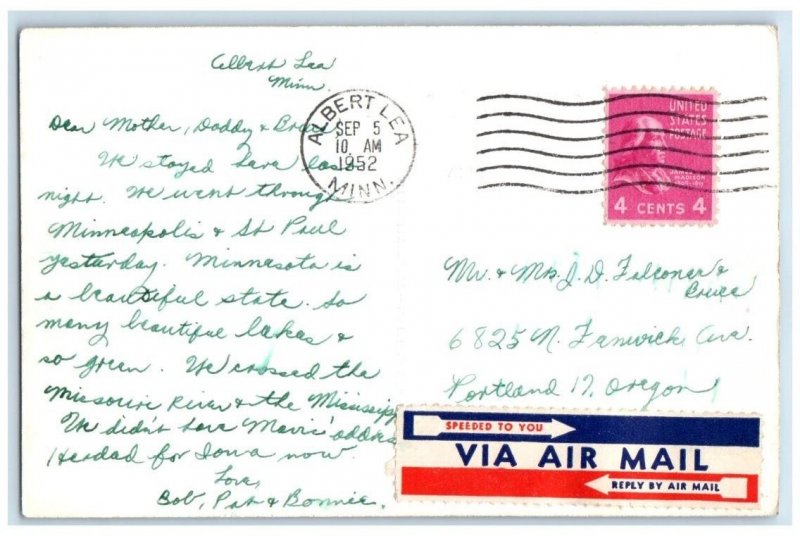 Albert Lea
Minn.
Dear Mother, Daddy & Bruce
We stayed here last
night. We went through
Minneapolis & St Paul
yesterday. Minnesota is
a beautiful state. So
many beautiful lakes &
so green. We crossed the
Missouri River & the Mississippi
We didn't have address
Headed for Iowa now.
Love,
Bob, Pat & Bonnie.
ALBERT LEA
SEP 5
10 AM
1952
MINN.
UNITED
STATES
POSTAGE
JAMES
MADISON
4 CENTS 4
Mr. & Mrs. J. D. Falconer &
Bruce
6825 N. Fenwick Ave.
Portland 17, Oregon
SPEEDED TO YOU
VIA AIR MAIL
REPLY BY AIR MAIL